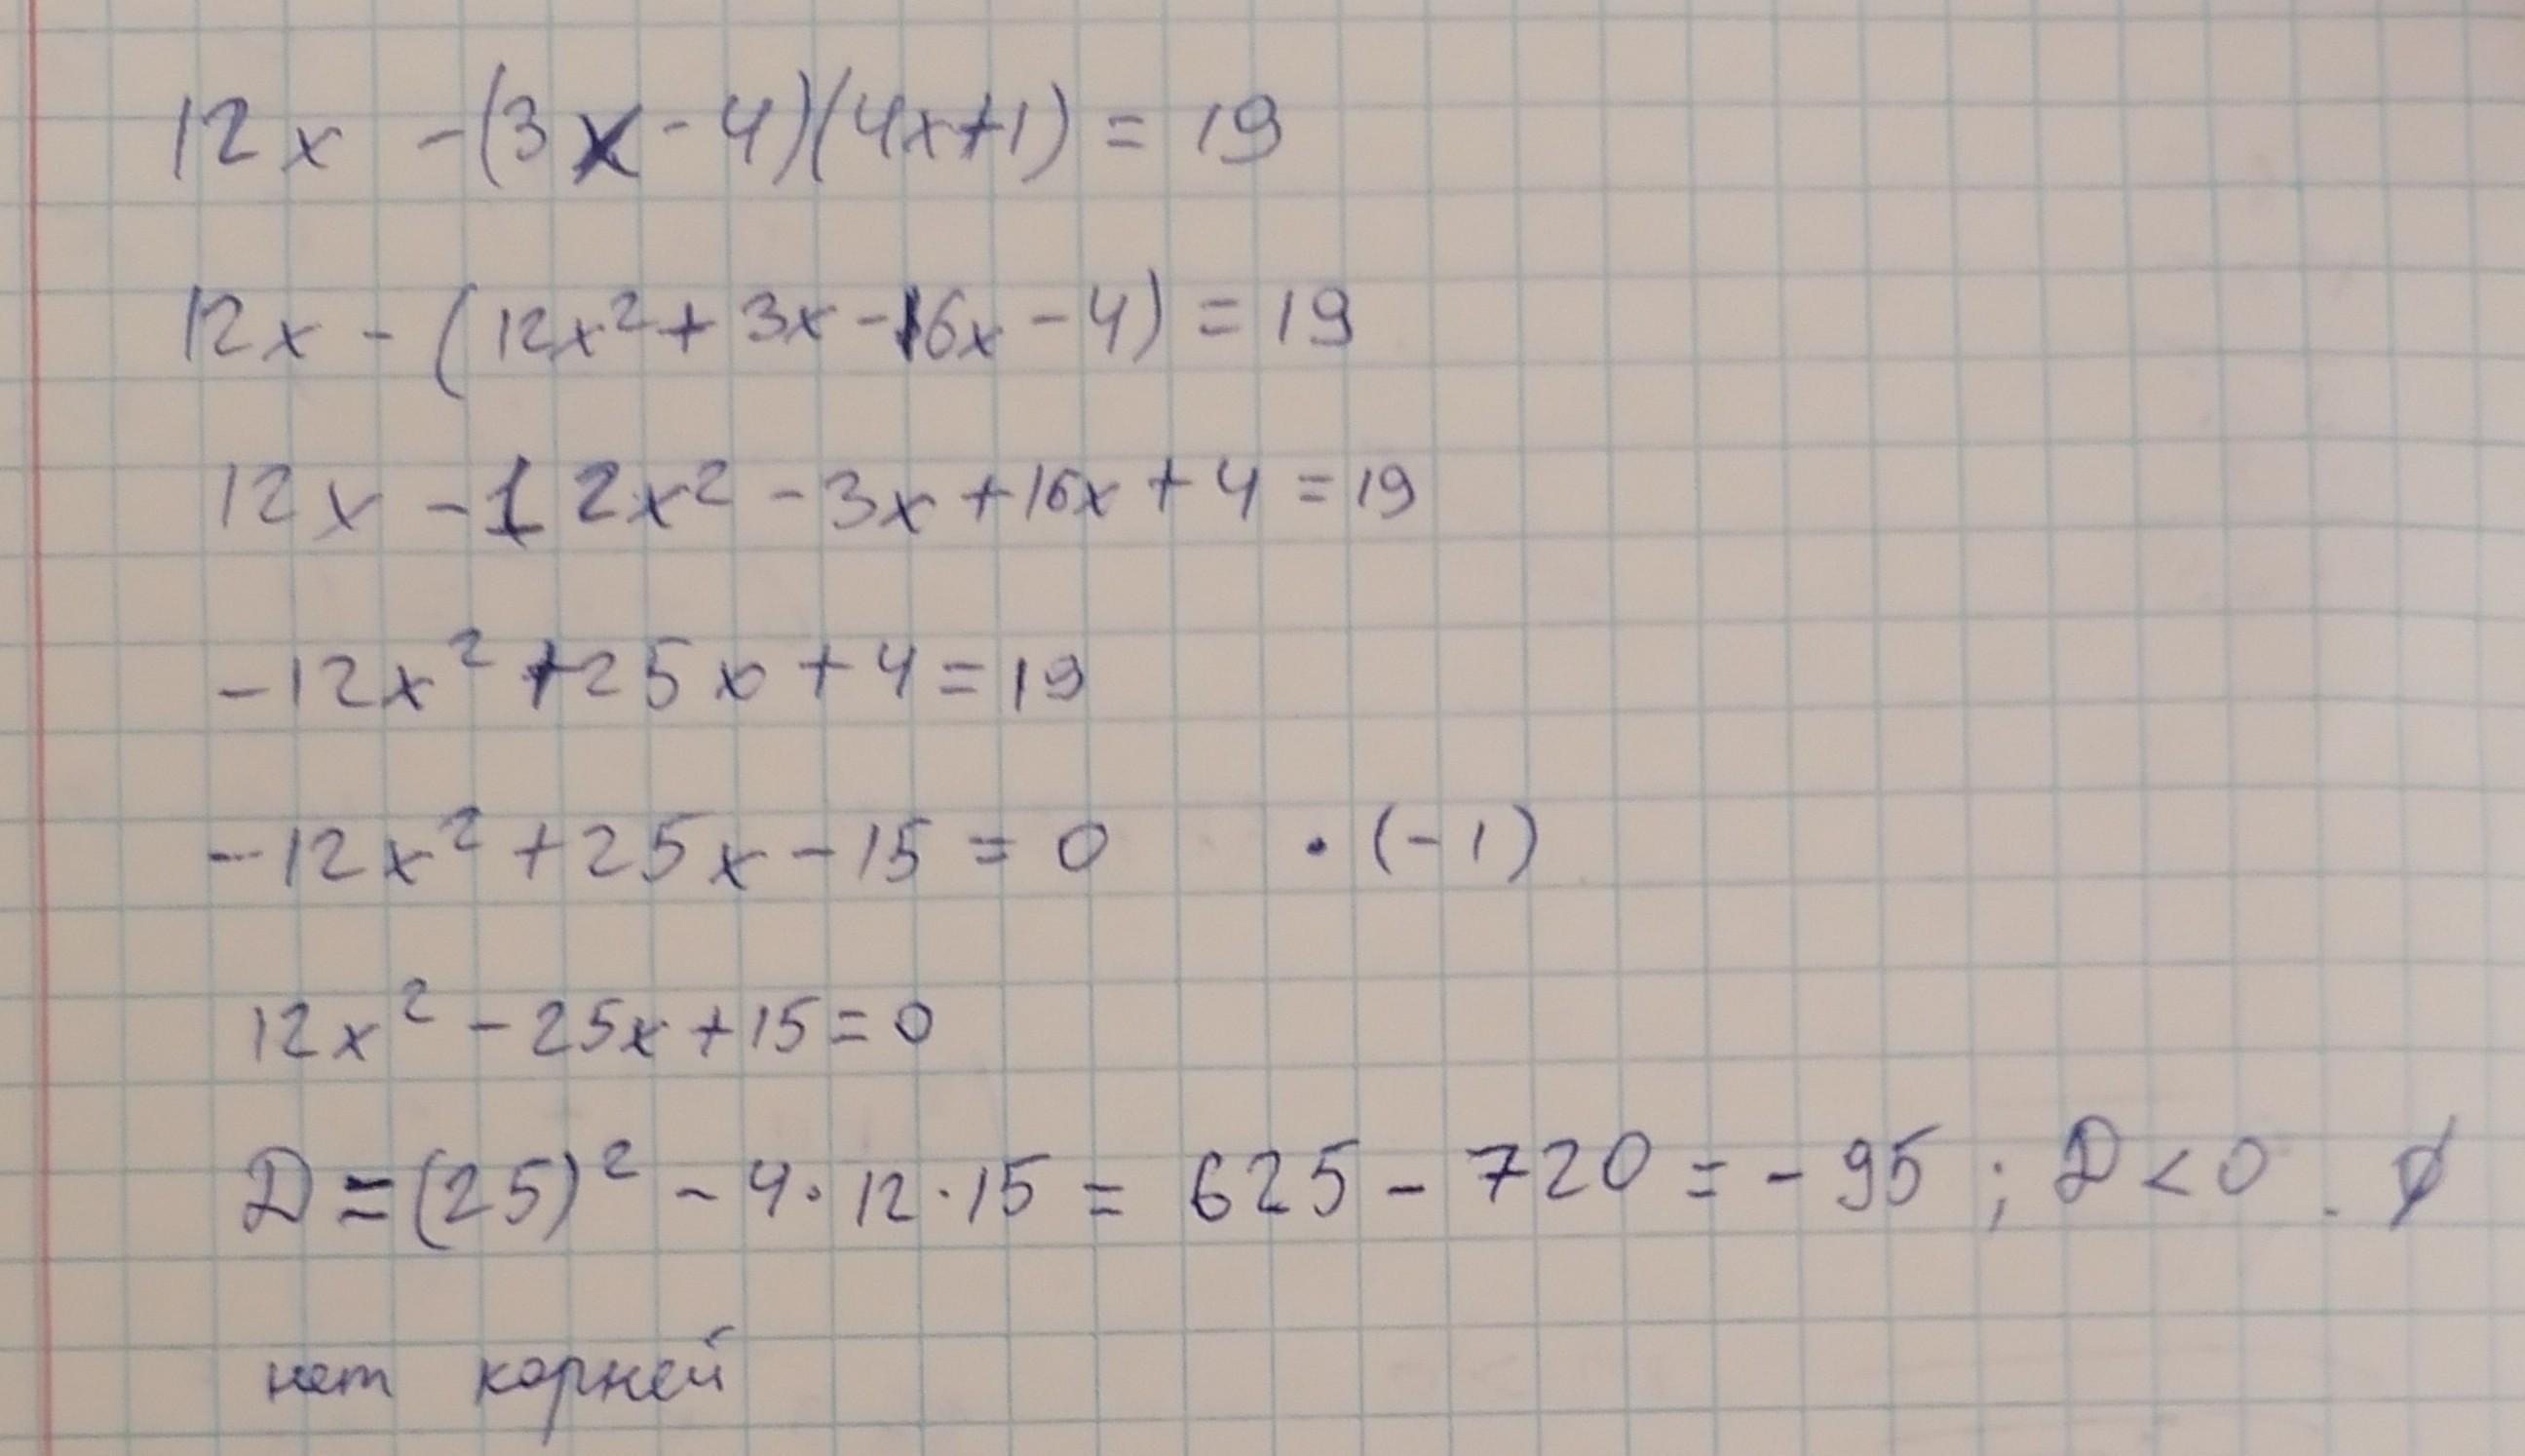 12x - (3x - 4)(4x+1) = 19
12x - (12x² + 3x - 16x - 4) = 19
12x - 12x² - 3x + 16x + 4 = 19
-12x² + 25x + 4 = 19
-12x² + 25x - 15 = 0 · (-1)
12x² - 25x + 15 = 0
D = (25)² - 4 · 12 · 15 = 625 - 720 = -95 ; D < 0 . ∅
нет корней